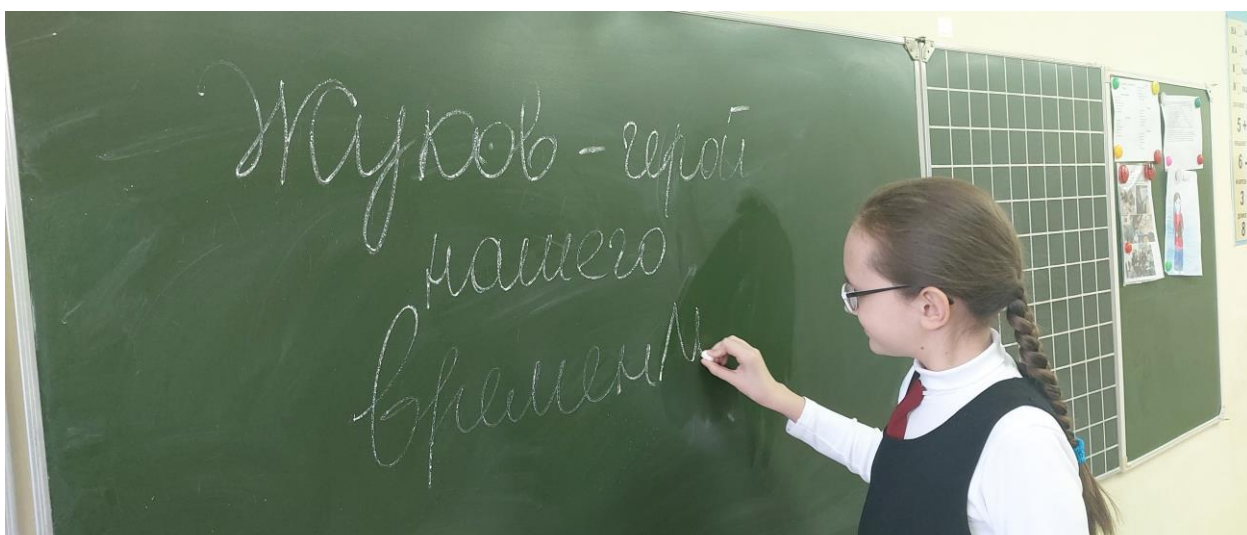 Жуков - герой
нашего
времени
5 +
6 -
3
8